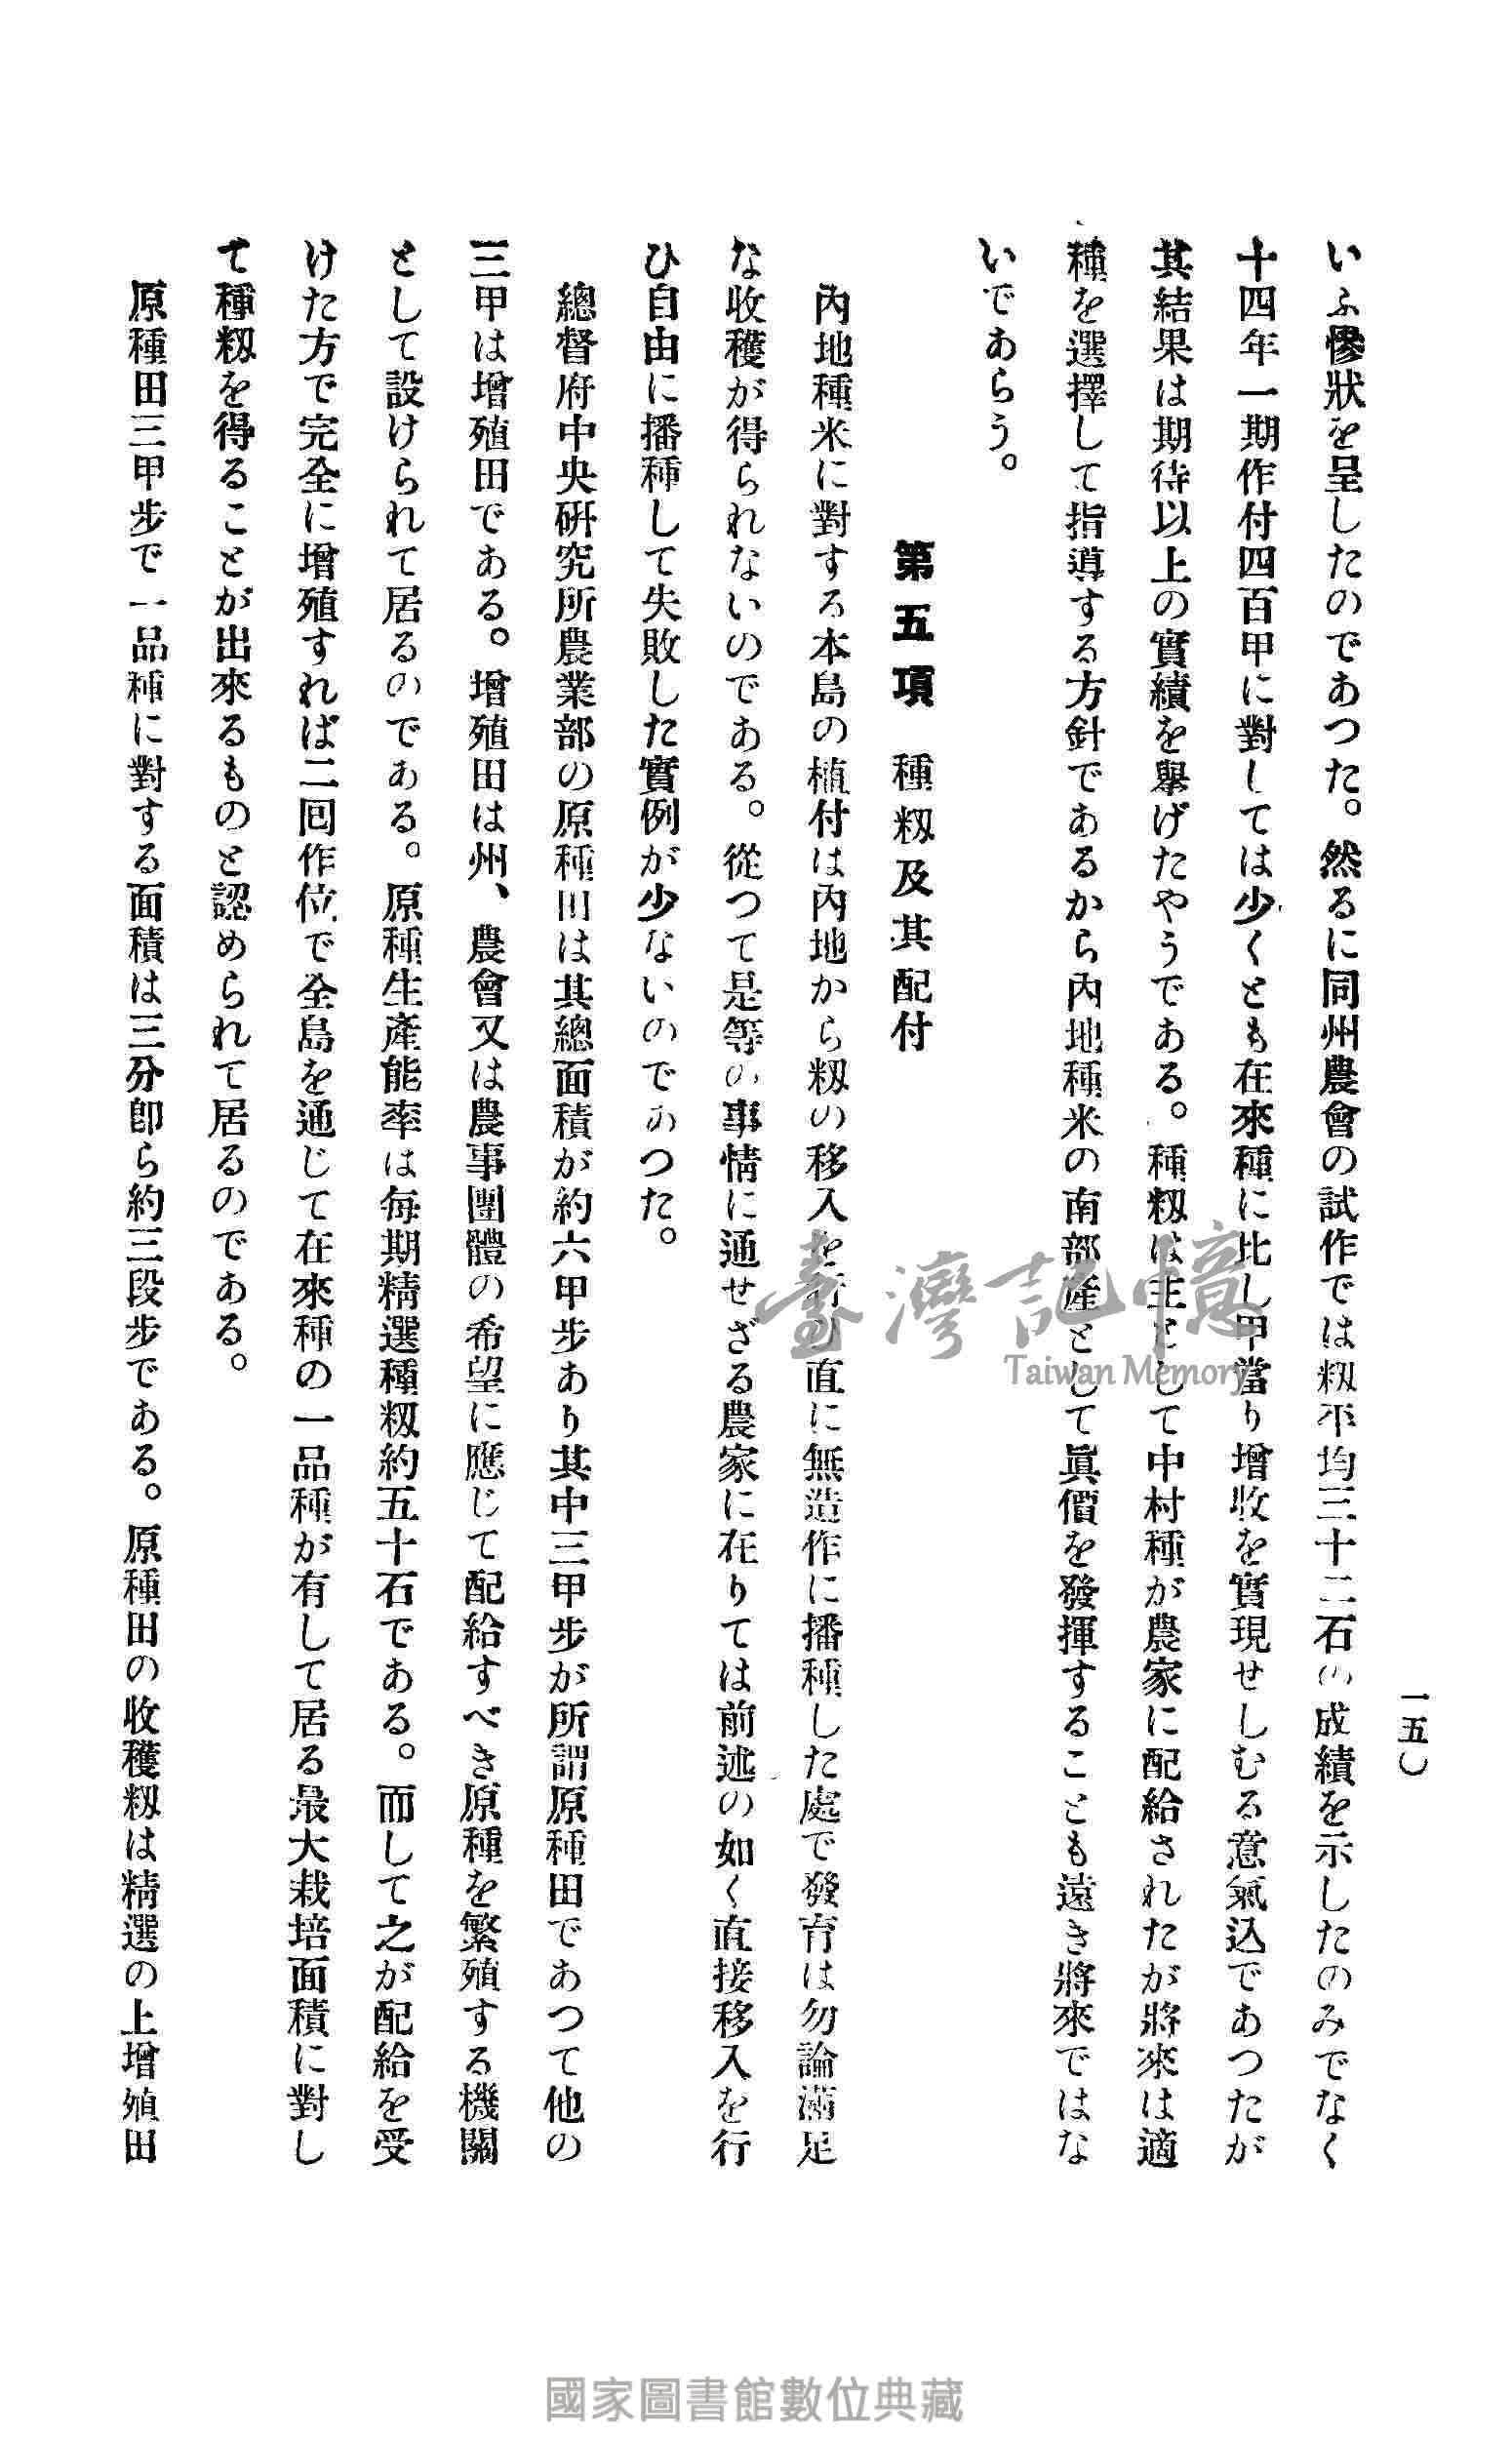 一五〇
いふ慘狀を呈したのであつた。然るに同州農會の試作では籾平均三十二石の成績を示したのみでなく
十四年一期作付四百甲に對しては少くとも在來種に比し甲當り增收を實現せしむる意氣込であつたが
其結果は期待以上の實績を擧げたやうである。種籾は主として中村種が農家に配給されたが將來は適
種を選擇して指導する方針であるから內地種米の南部產として眞價を發揮することも遠き將來ではな
いであらう。
第五項 種籾及其配付
內地種米に對する本島の植付は內地から籾の移入を行ひ直に無造作に播種した處で發育は勿論滿足
な收穫が得られないのである。從つて是等の事情に通せざる農家に在りては前述の如く直接移入を行
ひ自由に播種して失敗した實例が少ないのであつた。
總督府中央硏究所農業部の原種田は其總面積が約六甲步あり其中三甲步が所謂原種田であつて他の
三甲は增殖田である。增殖田は州、農會又は農事團體の希望に應じて配給すべき原種を繁殖する機關
として設けられて居るのである。原種生產能率は每期精選種籾約五十石である。而して之が配給を受
けた方で完全に增殖すれば二回作位で全島を通じて在來種の一品種が有して居る最大栽培面積に對し
て種籾を得ることが出來るものと認められて居るのである。
原種田三甲步で一品種に對する面積は三分卽ら約三段步である。原種田の收穫籾は精選の上增殖田
臺灣記憶
Taiwan Memory
國家圖書館數位典藏